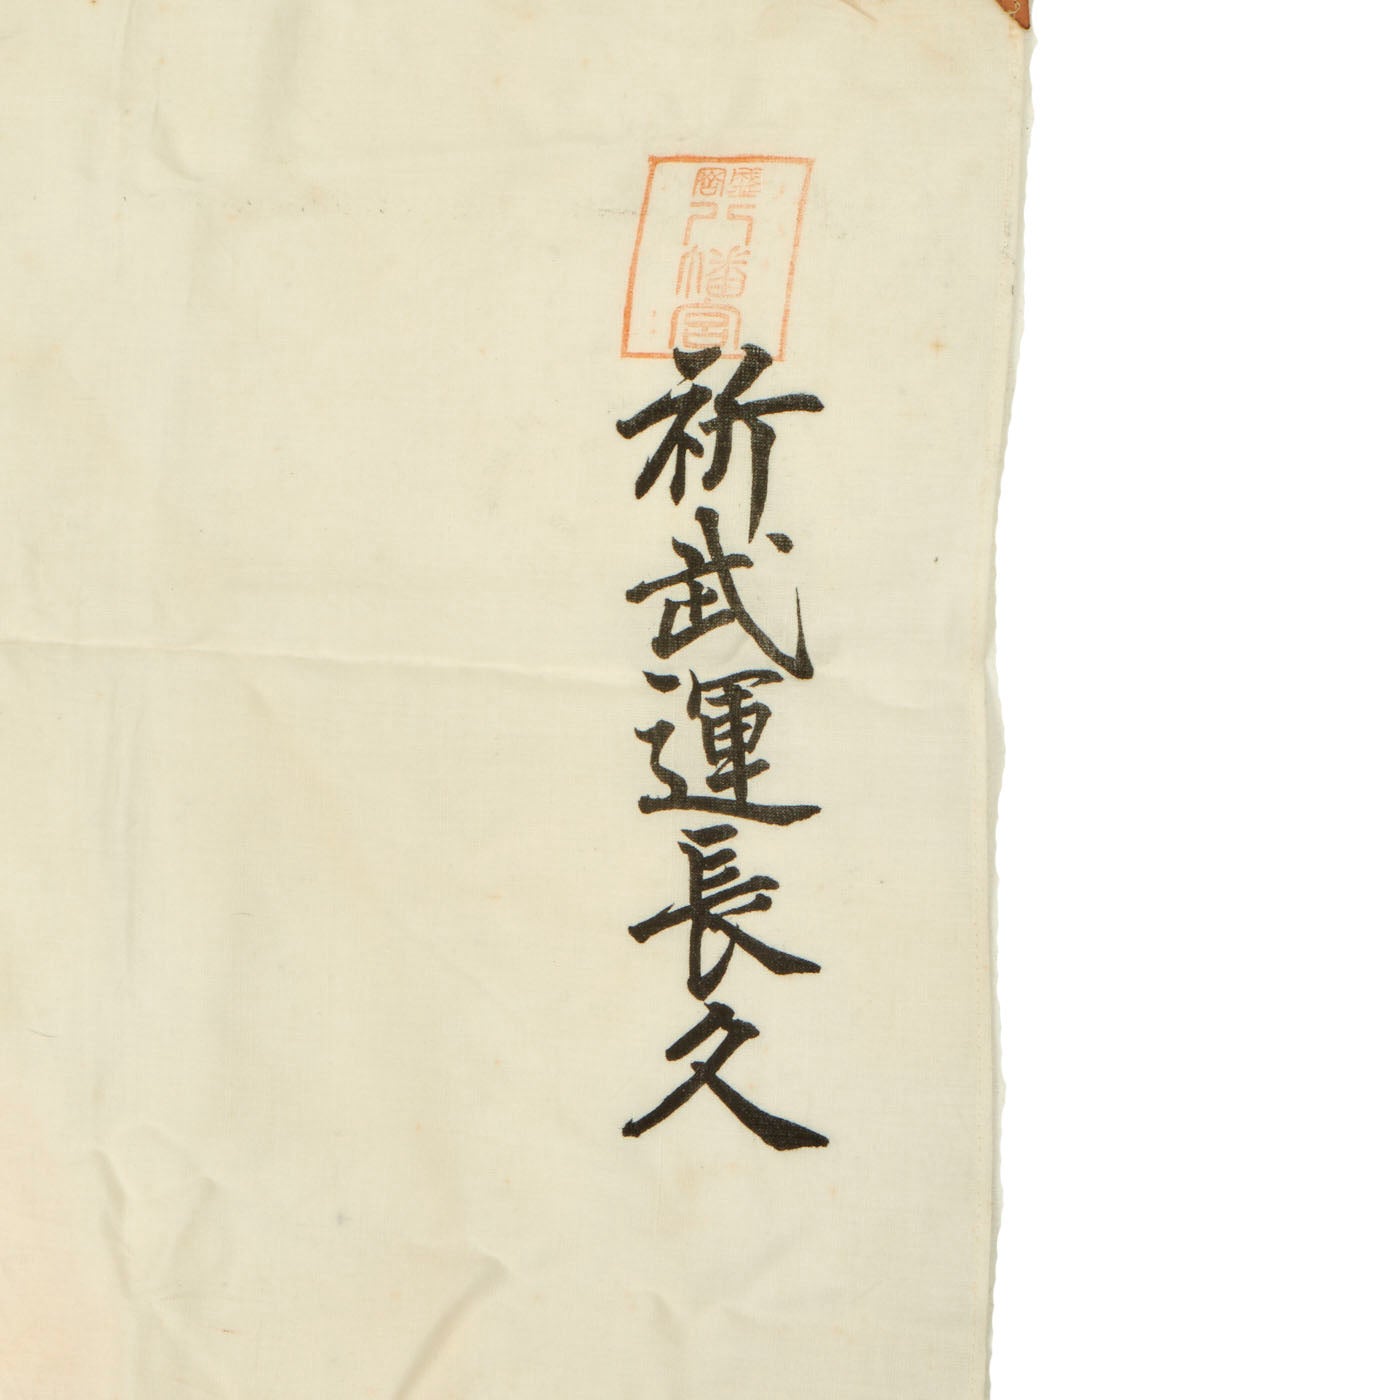 盛岡八幡宮
祈武運長久